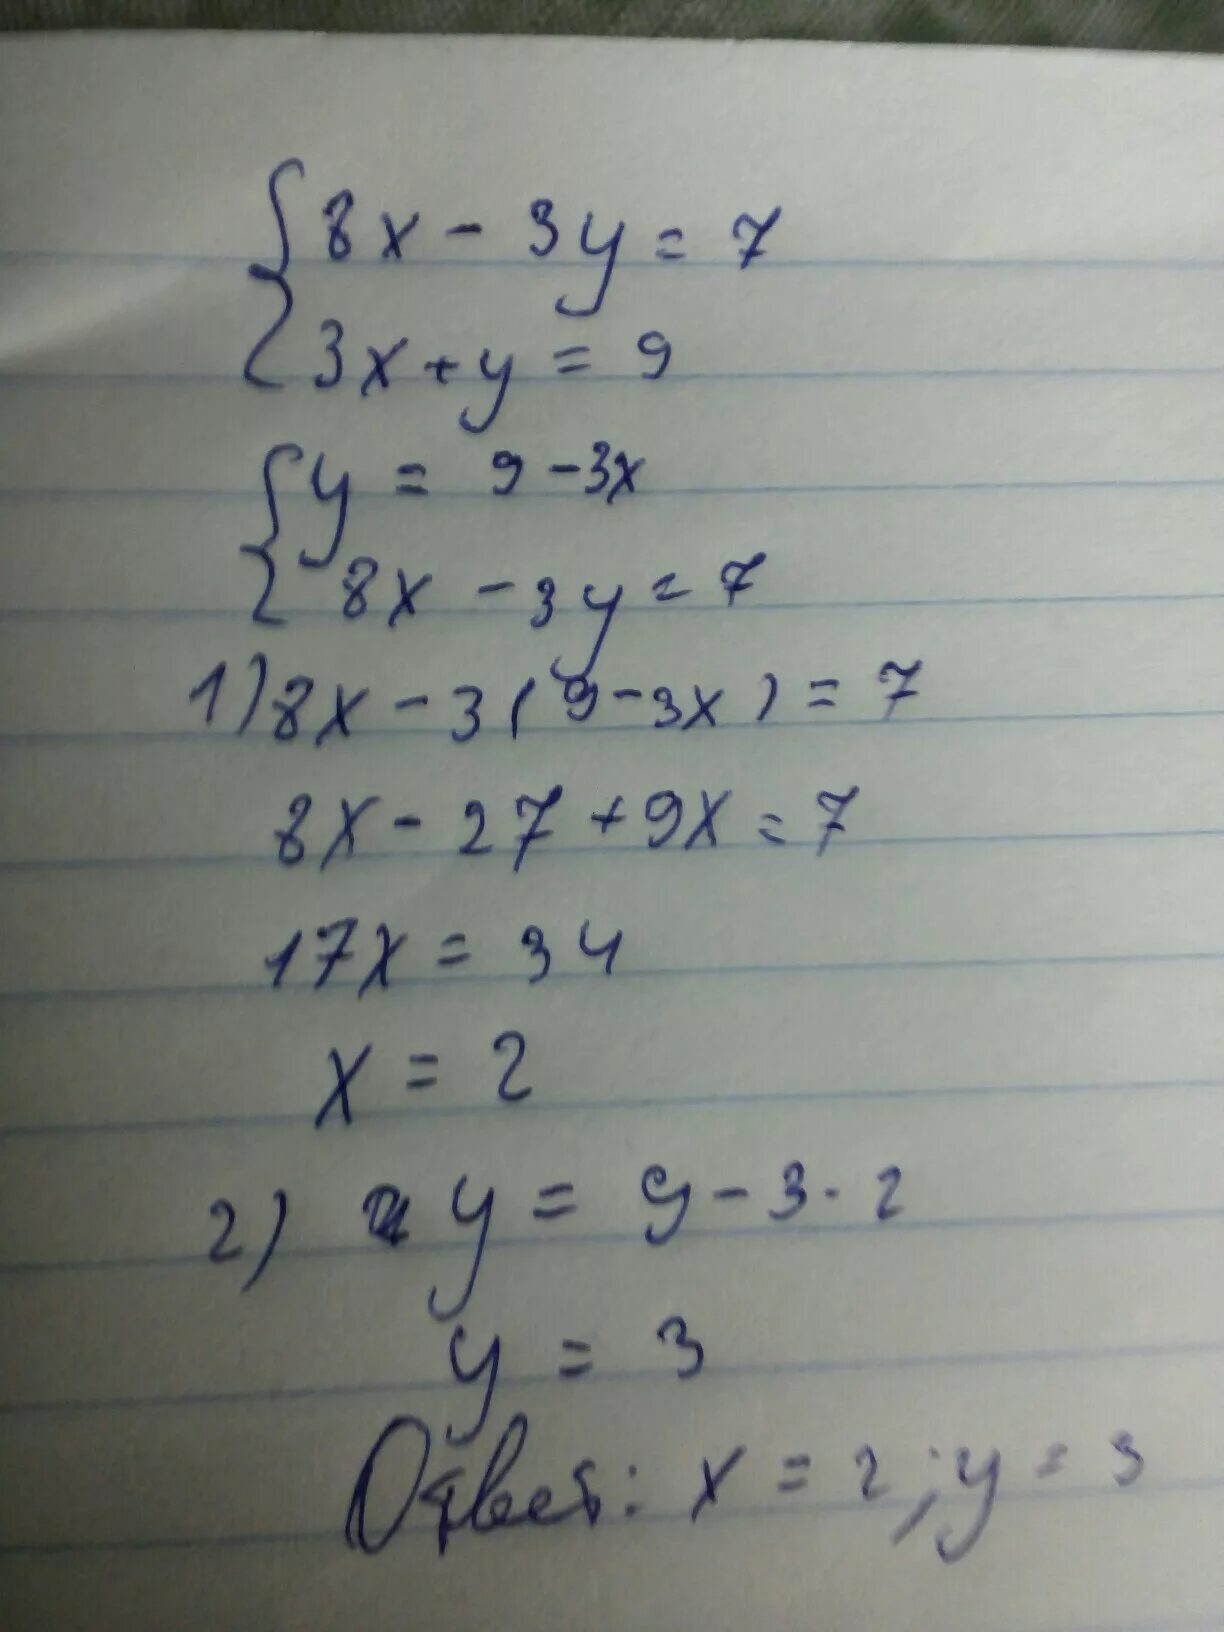 {8x - 3y = 7
3x + y = 9
{y = 9 - 3x
8x - 3y = 7
1) 8x - 3(9 - 3x) = 7
8x - 27 + 9x = 7
17x = 34
x = 2
2) y = 9 - 3 · 2
y = 3
Ответ: x = 2; y = 3